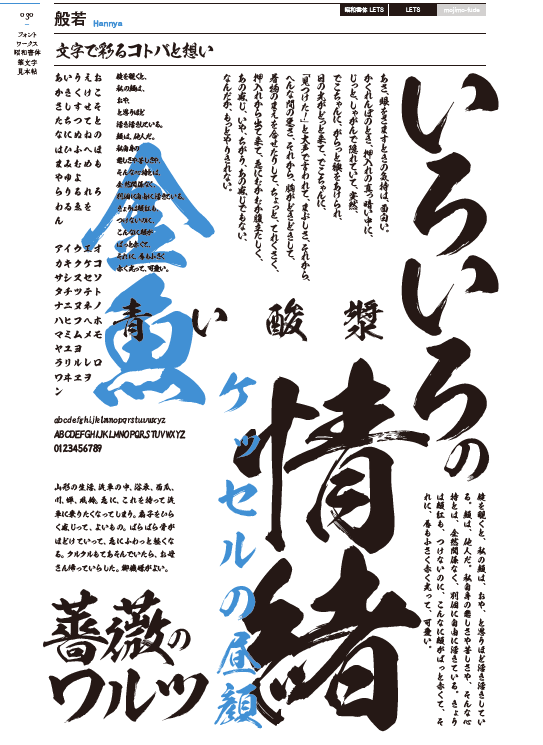 030
フォント
ワークス
昭和書体
筆文字
見本帖
般若 Hannya
昭和書体 LETS
LETS
mojimo-fude
文字で彩るコトバと想い
あいうえお
かきくけこ
さしすせそ
たちつてと
なにぬねの
はひふへほ
まみむめも
やゆよ
らりるれろ
わゐゑを
ん
アイウエオ
カキクケコ
サシスセソ
タチツテト
ナニヌネノ
ハヒフヘホ
マミムメモ
ヤユヨ
ラリルレロ
ワヰヱヲ
ン
abcdefghijklmnopqrstuvwxyz
ABCDEFGHIJKLMNOPQRSTUVWXYZ
0123456789
鏡を覗くと、
私の顔は、
おや、
と思うほど
活き活きしている。
顔は、他人だ。
私自身の
悲しさや苦しさや、
そんな心持とは、
全然関係なく、
別個に自由に活きている。
きょうは頬紅も、
つけないのに、
こんなに頬が
ぱっと赤くて、
それに、唇も小さく
赤く光って、可愛い。
あさ、眼をさますときの気持は、面白い。
かくれんぼのとき、押入れの真っ暗い中に、
じっと、しゃがんで隠れていて、突然、
でこちゃんに、がらっと襖をあけられ、
日の光がどっと来て、でこちゃんに、
「見つけた!」と大声で言われて、まぶしさ、それから、
へんな間の悪さ、それから、胸がどきどきして、
着物のまえを合せたりして、ちょっと、てれくさく、
押入れから出て来て、急にむかむか腹立たしく、
あの感じ、いや、ちがう、あの感じでもない、
なんだか、もっとやりきれない。
いろいろの
情緒
金魚
青い酸漿
ケッセルの昼顔
山形の生活、汽車の中、浴衣、西瓜、
川、蝉、風鈴。急に、これを持って汽
車に乗りたくなってしまう。扇子をひら
く感じって、よいもの。ぱらぱら骨が
ほどけていって、急にふわっと軽くな
る。クルクルもてあそんでいたら、お母
さん帰っていらした。御機嫌がよい。
薔薇の
ワルツ
鏡を覗くと、私の顔は、おや、と思うほど活き活きしてい
る。顔は、他人だ。私自身の悲しさや苦しさや、そんな心
持とは、全然関係なく、別個に自由に活きている。きょう
は頬紅も、つけないのに、こんなに頬がぱっと赤くて、そ
れに、唇も小さく赤く光って、可愛い。